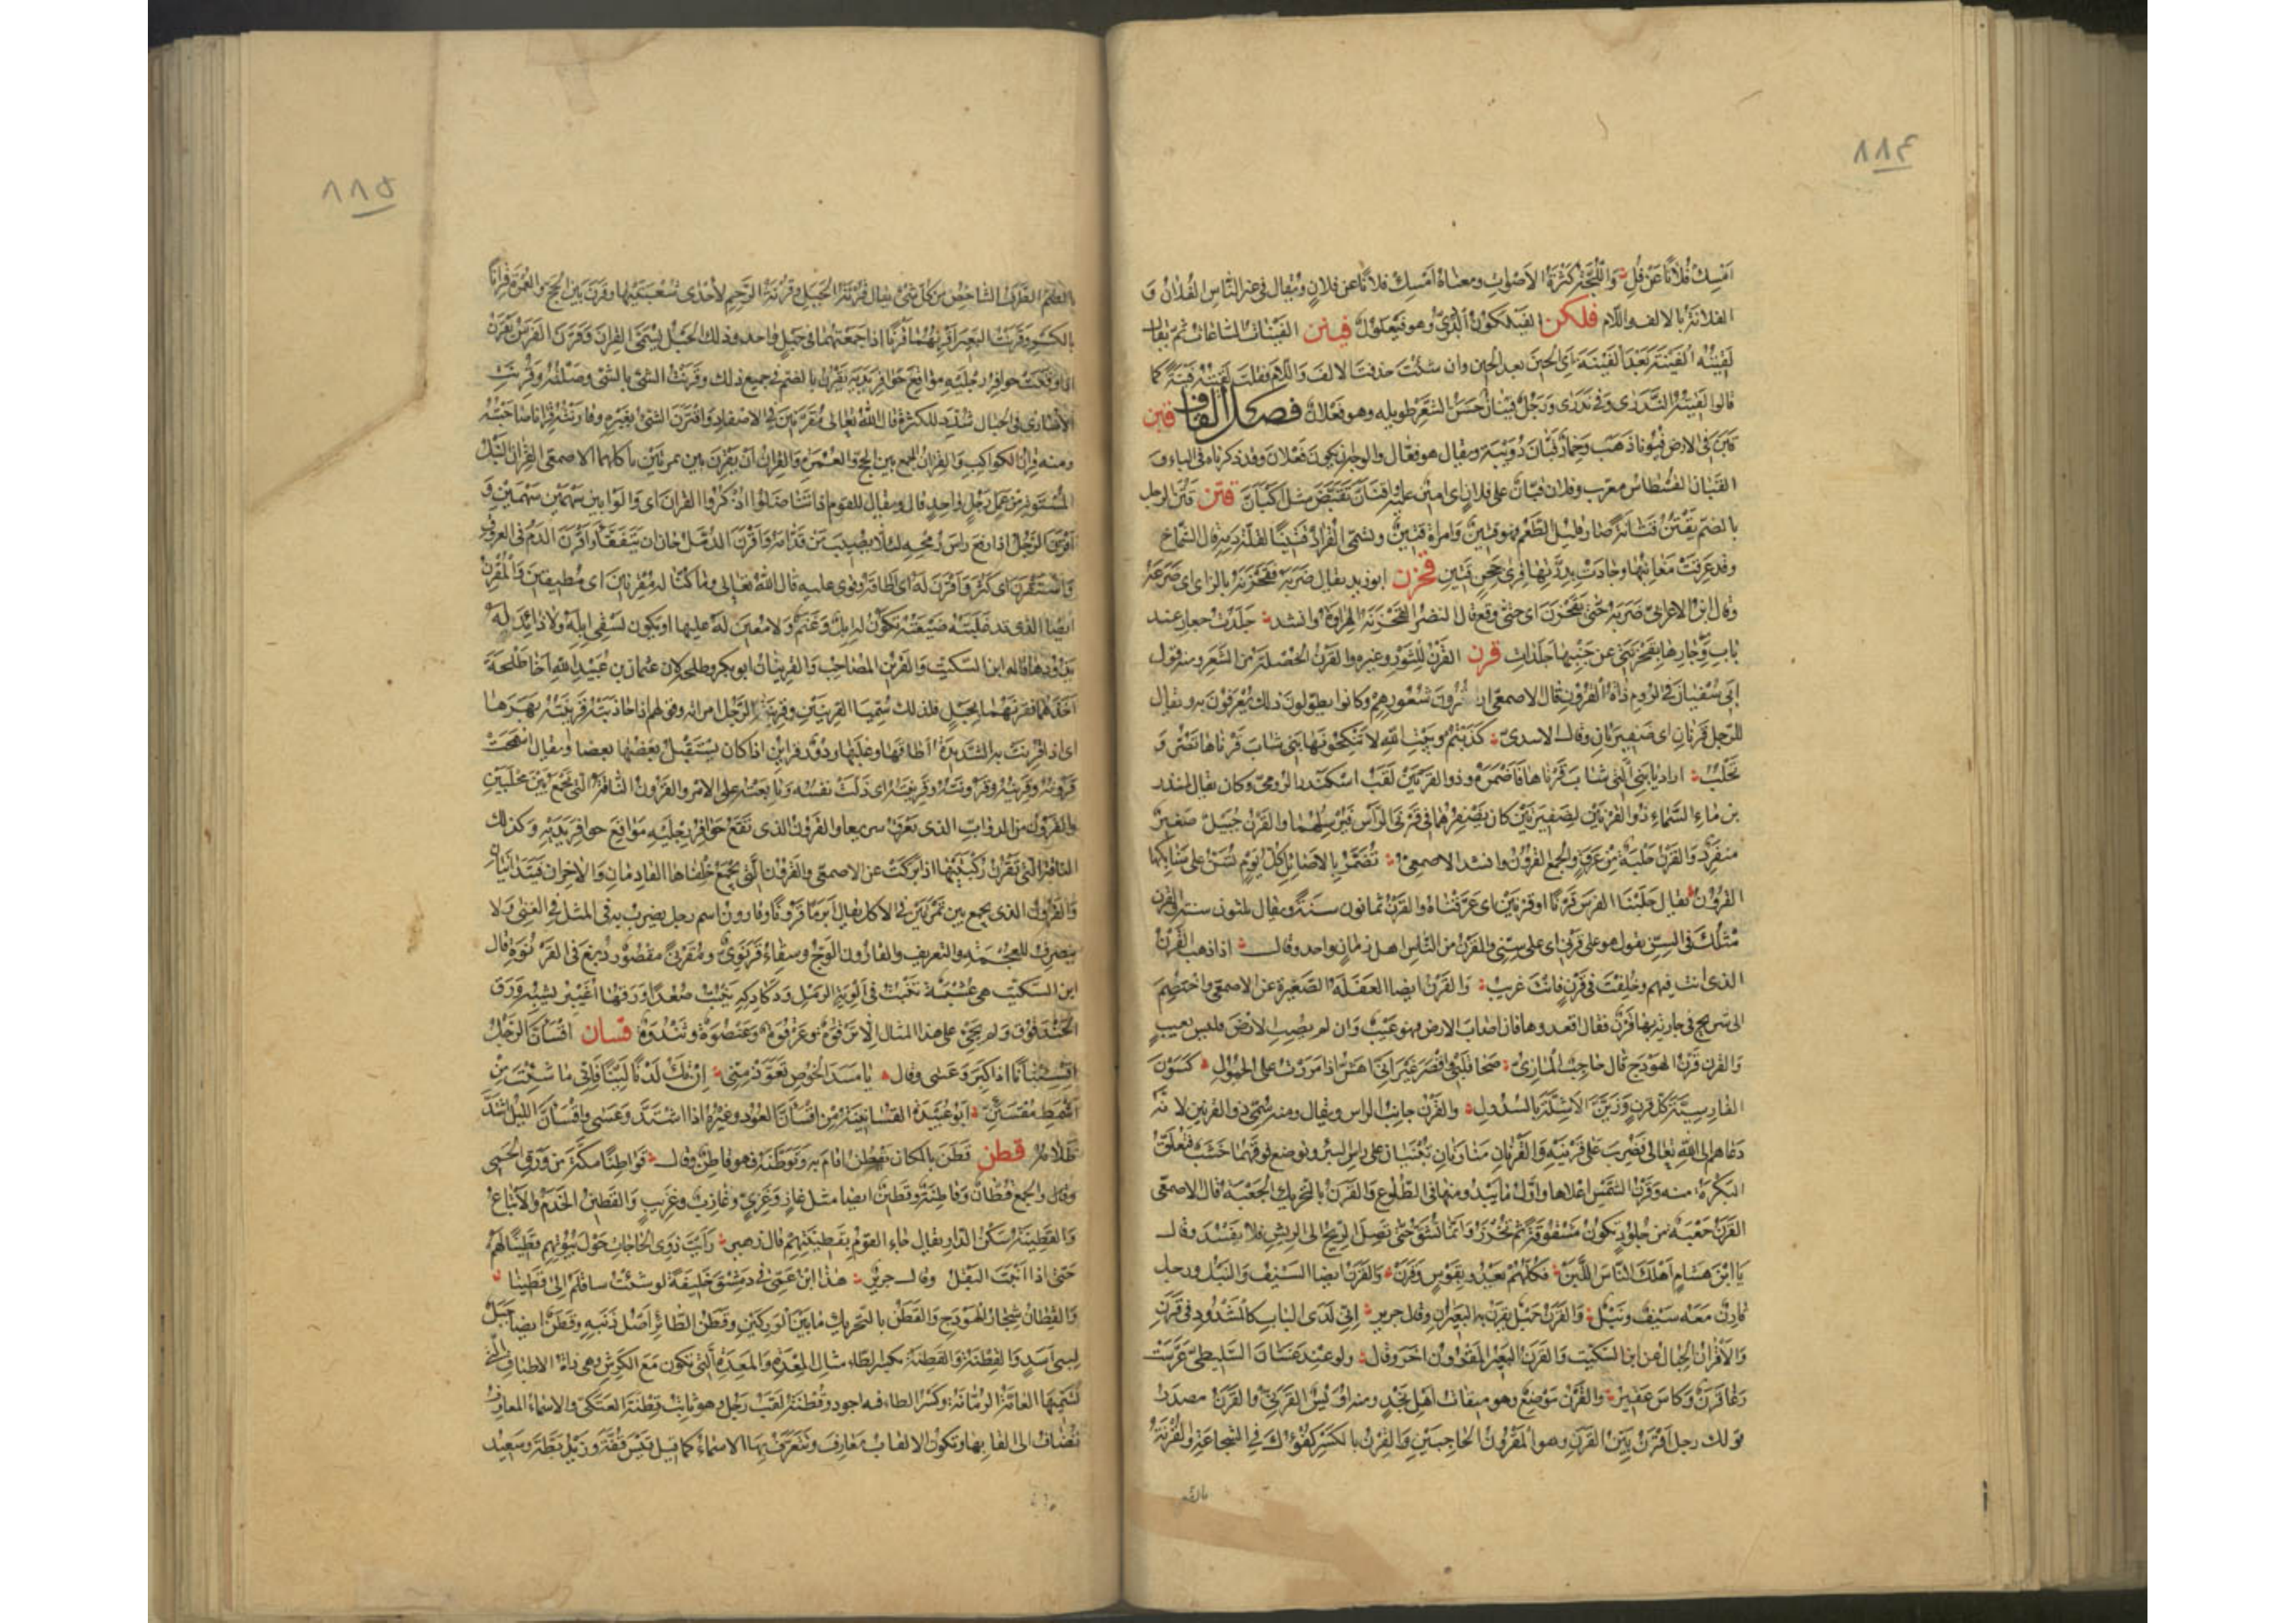 ٨٨٤
امسك فلانا عن فل واللجة كثرة الاصوات ومعناه امسك فلانا عن فلان ويقال في غير الناس الفلان و
الفلانة بالالف واللام فلكن الفيلكون البردي وهو فيعلول فين الفينات الساعات ثم يقال
لقيته الفينة بعد الفينة اي الحين بعد الحين وان شئت حذفت الالف واللام فقلت لقيته فينة كما
قالوا لقيته الندرى وفي ندرى ورجل فينان حسن الشعر طويله وهو فعلان فصل القاف قبن
قبن في الارض قبونا ذهب وحمار قبان دويبة ويقال هو فعال والوجه ان يكون فعلان وقد ذكرناه في الباء و
القبان القسطاس معرب وفلان قبان على فلان اي امين عليه اقبأن تقبض مثل اكبأن قتن قتن الرجل
بالضم يقتن قتانة صار قليل الطعم فهو قتين وامراة قتين وتسمى القراد قتينا لقلة دمه قال الشماخ
وقد عرقت مغابنها وجادت بدرتها قرى جحن قتين قحزن ابو زيد يقال ضربه فقحزنه بالزاي اي صرعه
وقال ابن الاعرابي ضربه حتى تقحزن اي حتى وقع قال النضر القحزنة الهراوة وانشد جلدت جعار عند
باب وجارها بقحزنتي عن جنبها جلدات قرن القرن للثور وغيره والقرن الخصلة من الشعر ومنه قول
ابي سفيان في الروم ذات القرون قال الاصمعي اراد قرون شعورهم وكانوا يطولون ذلك يعرفون به ويقال
للرجل قرنان اي ضفيرتان وقال الاسدي كذبتم وبيت الله لا تنكحونها بني شاب قرناها تصر و
تحلب اراد يا بني التي شاب قرناها فاضمره وذو القرنين لقب اسكندر الرومي وكان يقال للمنذر
بن ماء السماء ذو القرنين لضفيرتين كان يضفرهما في قرني الراس فيرسلهما والقرن جبيل صغير
منفرد والقرن حلبة من عرق والجمع القرون وانشد الاصمعي تضمر بالاصائل كل يوم تسن على سنابكها
القرون يقال حلبنا الفرس قرنا او قرنين اي عرقناه والقرن ثمانون سنة ويقال ثلثون سنة والقرن
مثلك في السن يقول هو على قرني اي على سني والقرن من الناس اهل زمان واحد وقال اذا ذهب القرن
الذي انت فيهم وخلفت في قرن فانت غريب والقرن ايضا العفلة الصغيرة عن الاصمعي واختصم
الى شريح في جارية بها قرن فقال اقعدوها فان اصاب الارض فهو عيب وان لم يصب الارض فليس بعيب
والقرن قرن الهودج قال حاجب المازني صحا قلبي واقصر غير اني اهش اذا مررت على الحمول كسون
الفارسية كل قرن وزين الاشلة بالسدول والقرن جانب الراس ويقال ومنه سمي ذو القرنين لانه
دعاهم الى الله تعالى فضرب على قرنيه والقرنان منارتان تبنيان على راس البئر ويوضع فوقهما خشبة فتعلق
البكرة منه وقرن الشمس اعلاها واول ما يبدو منها في الطلوع والقرن بالتحريك الجعبة قال الاصمعي
القرن جعبة من جلود تكون مشقوقة ثم تخرز وانما تشق حتى تصل الريح الى الريش فلا يفسد وقال
يا ابن هشام اهلك الناس اللبن فكلهم يعدو بقوس وقرن والقرن ايضا السيف والنبل ورجل
قارن معه سيف ونبل والقرن حبل يقرن به البعيران وقال جرير اني لدى الباب كالمشدود في قرن
والاقران الحبال عن ابن السكيت والقرن البعير المقرون باخر وقال ولو عند غسان السليطي عرست
رغا قرن وكاس عقير والقرن موضع وهو ميقات اهل نجد ومنه اويس القرني والقرن مصدر
قولك رجل اقرن بين القرن وهو المقرون الحاجبين والقرن بالكسر كفؤك في الشجاعة والقرنة
بالضم
٨٨٥
بالضم الطرف الشاخص من كل شيء يقال قرنة الجبل وقرنة الرحم لاحدى شعبتيها وقرن بين الحج والعمرة قرانا
بالكسر وقرنت البعيرين اقرنهما قرنا اذا جمعتهما في حبل واحد وذلك الحبل يسمى القران وقرن الفرس يقرن
اذا وقعت حوافر رجليه مواقع حوافر يديه يقرن بالضم في جميع ذلك وقرنت الشيء بالشيء وصلته وقرنت
الاسارى في الحبال شدد للكثرة قال الله تعالى مقرنين في الاصفاد واقترن الشيء بغيره وقارنته قرانا صاحبته
ومنه قران الكواكب والقران الجمع بين الحج والعمرة والقران ان يقرن بين تمرتين ياكلهما الاصمعي القران النبل
المستوية من عمل رجل واحد قال ويقال للقوم اذا تناضلوا اذكروا القران اي والوا بين سهمين سهمين و
اقرن الرجل اذا رفع راس رمحه لئلا يصيب من قدامه واقرن الدمل حان ان يتفقأ واقرن الدم في العروق
واستقرن اي كثر واقرن له اي اطاقه وقوي عليه قال الله تعالى وما كنا له مقرنين اي مطيقين والمقرن
ايضا الذي قد غلبته ضيعته تكون له ابل وغنم ولا معين له عليها او يكون يسقي ابله ولا ذائد له
يذودها قاله ابن السكيت والقرين المصاحب والقرينان ابو بكر وطلحة لان عثمان بن عبيد الله اخا طلحة
اخذهما فقرنهما بحبل فلذلك سميا القرينين وقرينة الرجل امراته وقولهم اذا جاذبته قرينته بهرها
اي اذا قرنت به الشديدة اطاقها وغلبها ودور قرائن اذا كان يستقبل بعضها بعضا ويقال اسمحت
قرونه وقرينه وقرونته وقرينته اي ذلت نفسه وتابعته على الامر والقرون الناقة التي تجمع بين محلبين
والقرون من الدواب الذي يعرق سريعا والقرون الذي تقع حوافر رجليه مواقع حوافر يديه وكذلك
الناقة التي تقرن ركبتيها اذا بركت عن الاصمعي والقرون التي يجتمع خلفاها القادمان والاخران فيتدانيان
والقرون الذي يجمع بين تمرتين في الاكل يقال ابرما قرونا وقارون اسم رجل يضرب به المثل في الغنى ولا
ينصرف للعجمة والتعريف والقارون الوج وسقاء قرنوي ومقرنى مقصور دبغ في القرنوة قال
ابن السكيت هي عشبة تنبت في الوية الرمل ودكادكه تنبت صعدا ورقها اغيبر يشبه ورق
الحندقوق ولم يجئ على هذا المثال الا ترقوة وعرقوة وعنصوة وثندوة قسان اقسأن الرجل
اقسئنانا اذا كبر وعسى وقال يا مسد الخوص تعوذ مني ان تك لدنا لينا فاني ما شئت من
اشمط مقسئن ابو عبيدة القسأنينة من اقسأن العود وغيره اذا اشتد وعسى واقسأن الليل اشتد
ظلامه قطن قطن بالمكان يقطن اقام به وتوطنه فهو قاطن وقال قواطنا مكة من ورق الحمى
وقال والجمع قطان وقاطنة وقطين ايضا مثل غاز وغزي وعازب وعزيب والقطين الخدم والاتباع
والقطينة سكن الدار يقال جاء القوم بقطينتهم قال زهير رايت ذوي الحاجات حول بيوتهم قطينا لهم
حتى اذا انبت البقل وقال جرير هذا ابن عمي في دمشق خليفة لو شئت ساقكم الي قطينا
والقطان شجار الهودج والقطن بالتحريك ما بين الوركين وقطن الطائر اصل ذنبه وقطن ايضا جبل
لبني اسد والقطنة والقطنة بكسر الطاء مثال المعدة والمعدة التي تكون مع الكرش وهي ذات الاطباق التي
تسميها العامة الرمانة وكسر الطاء فيه اجود وقطنة لقب رجل وهو ثابت قطنة العتكي والاسماء المعارف
تضاف الى القابها وتكون الالقاب معارف وتتعرف بها الاسماء كما قيل قيس قفة وزيد بطة وسعيد